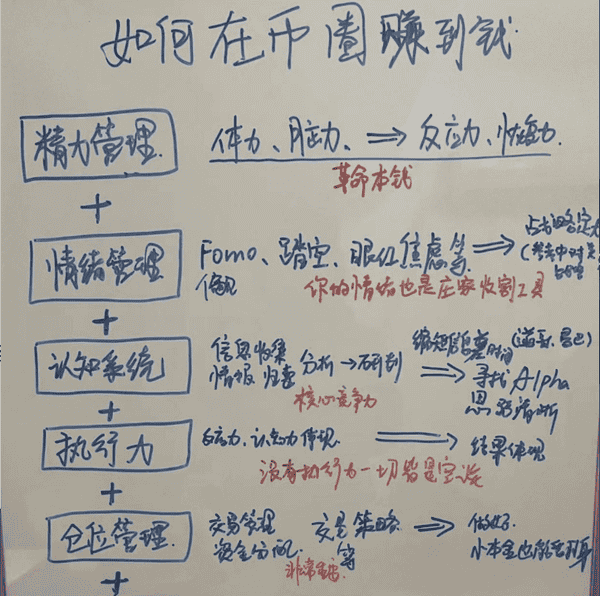 如何在币圈赚到钱
精力管理 体力、脑力、⇒ 反应力、恢复力.
革命本钱
+
情绪管理 Fomo、踏空、眼红焦虑等 ⇒
偏见 你的情绪也是庄家收割工具
+
认知系统 信息收集 分析→研判 ⇒ 缩短 时间
情报 归速 寻找 Alpha
核心竞争力 思路清晰
+
执行力 反应力、认知力体现 ⇒ 结果体现
没有执行力一切皆是空谈
+
仓位管理. 交易管理 交易策略 ⇒ 做好.
资金分配. 等 小本金也能翻身
非常重要
+